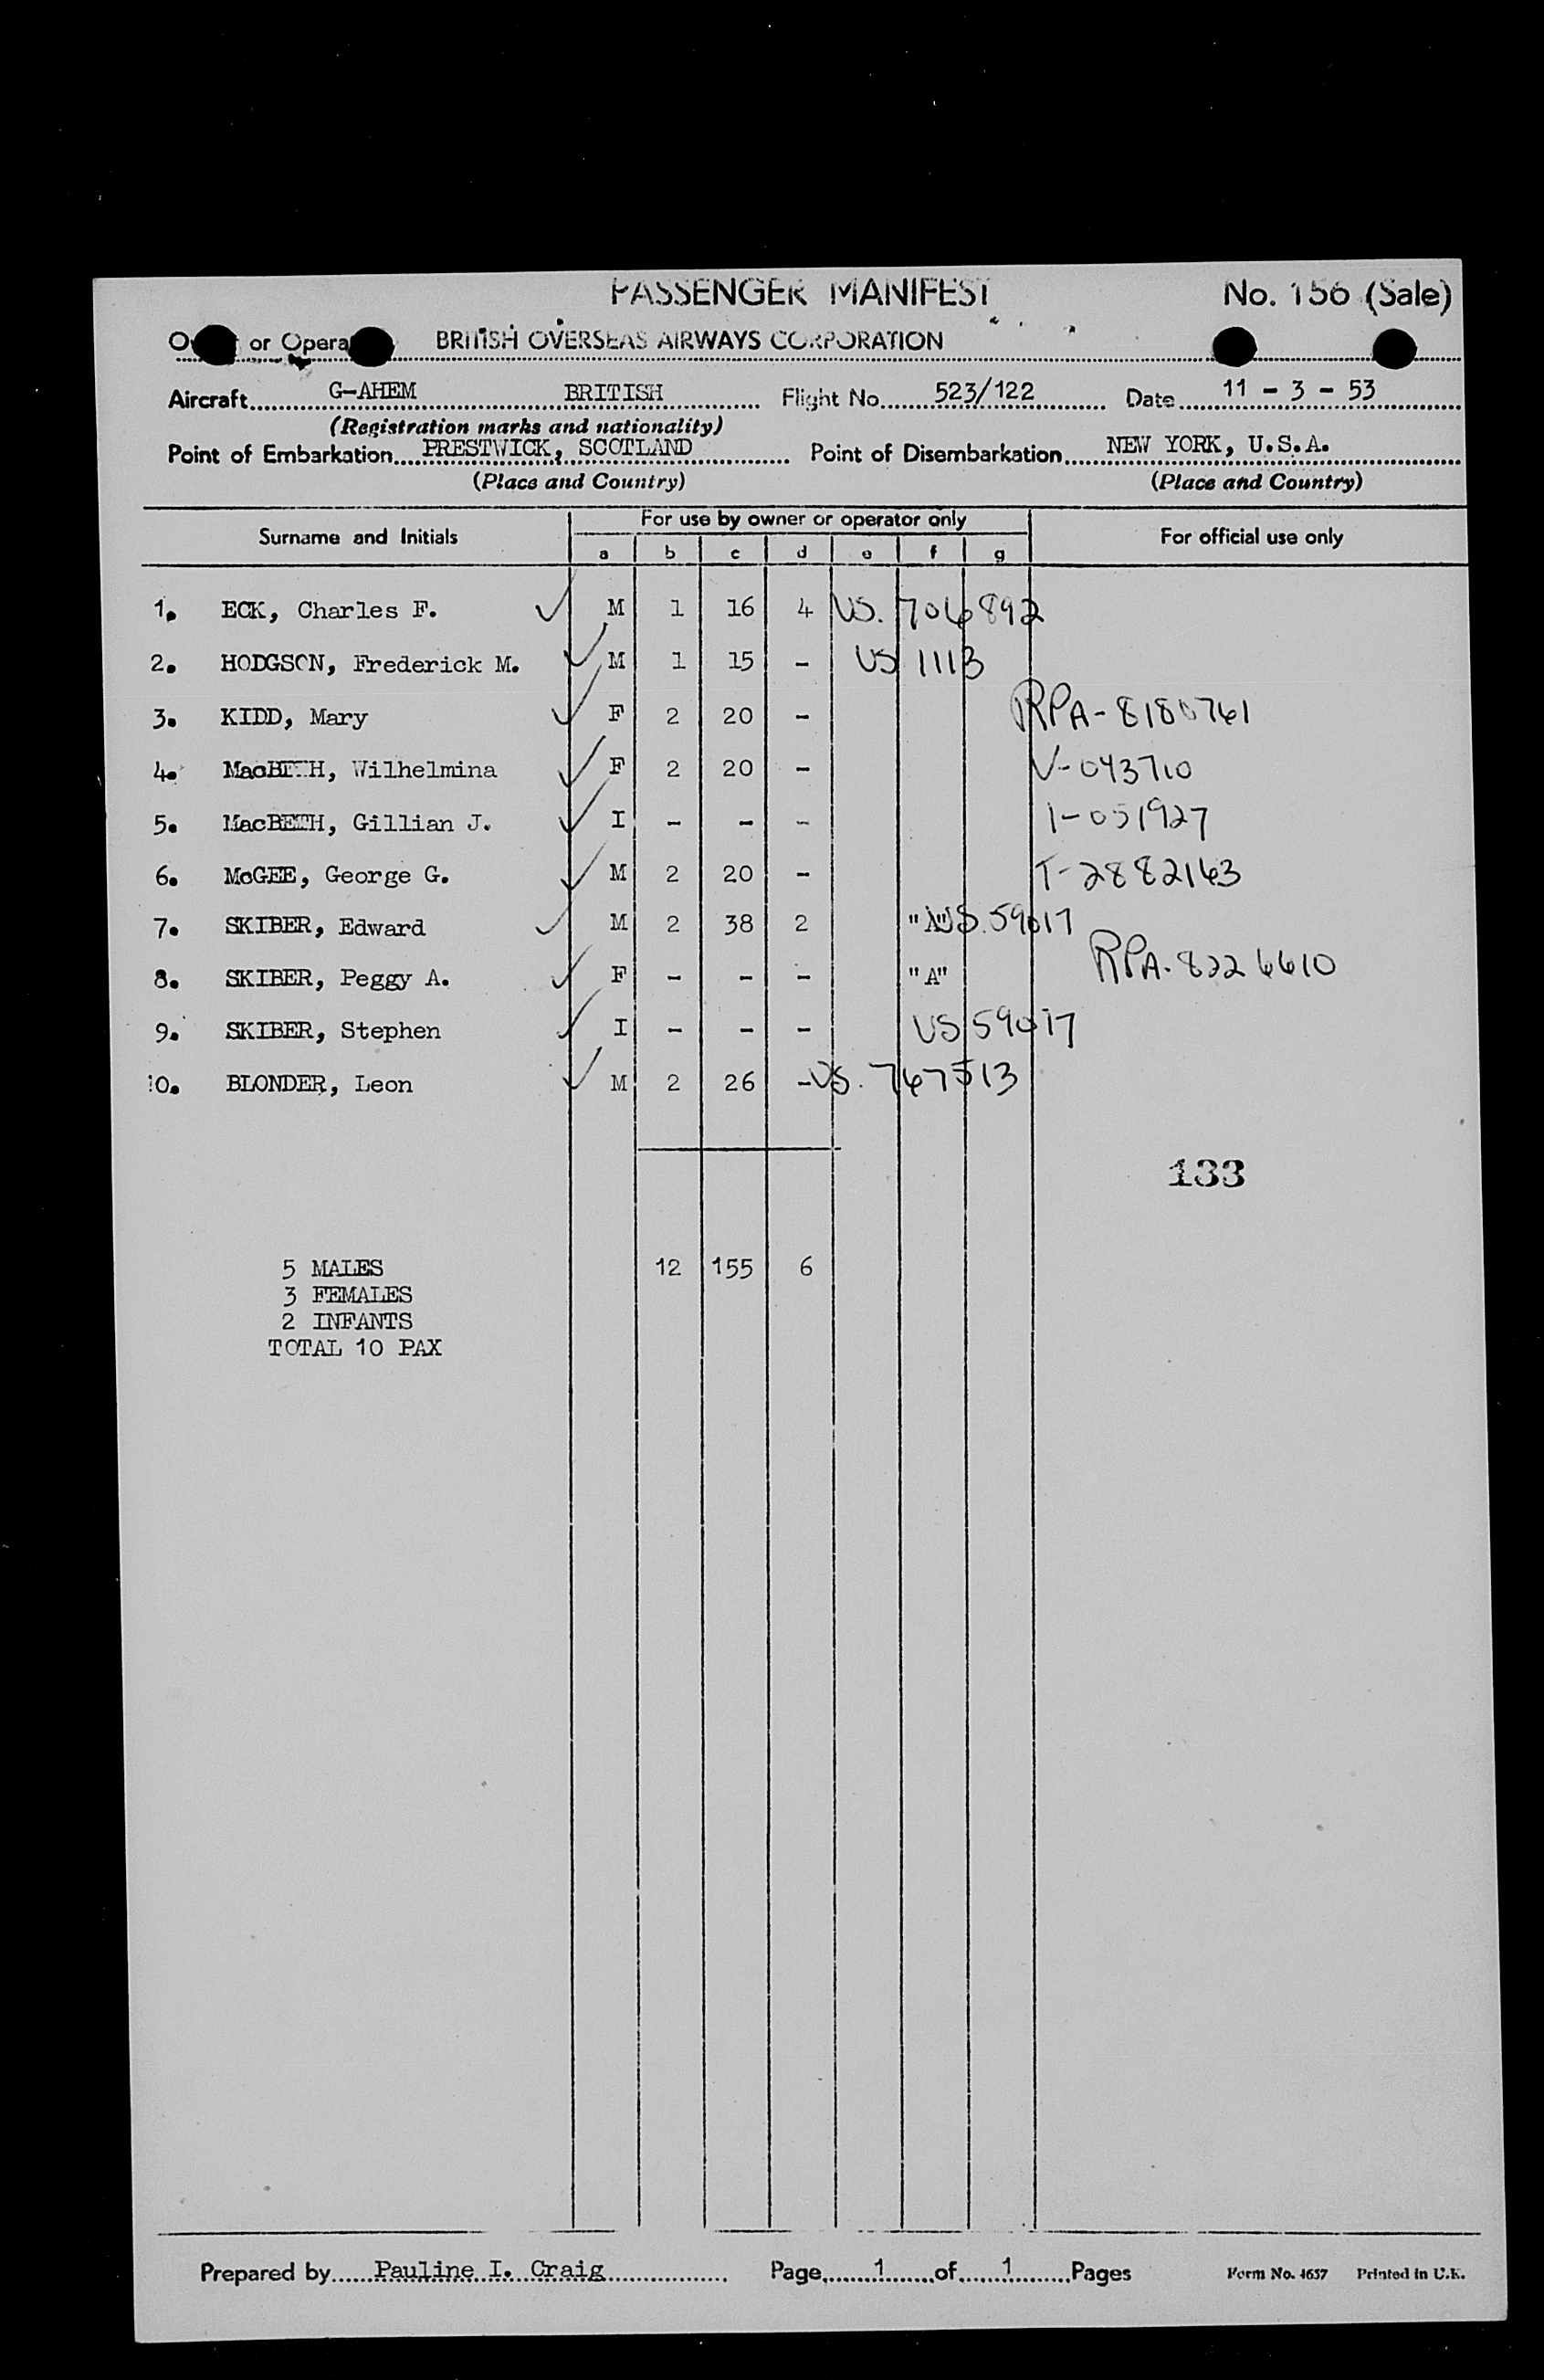 PASSENGER MANIFEST No. 156 (Sale)
or BRITISH OVERSEAS AIRWAYS CORPORATION
Aircraft G-AHEM BRITISH Flight No. 523/122 Date 11 - 3 - 53
(Registration marks and nationality)
Point of Embarkation PRESTWICK, SCOTLAND Point of Disembarkation NEW YORK, U.S.A.
(Place and Country) (Place and Country)
Surname and Initials For use by owner or operator only For official use only
a b c d e f g
1. ECK, Charles F. M 1 16 4 US. 706892
2. HODGSON, Frederick M. M 1 15 - US 1113
3. KIDD, Mary F 2 20 - RPA-8180761
4. MacBETH, Wilhelmina F 2 20 - V-043710
5. MacBETH, Gillian J. I - - - I-051927
6. McGEE, George G. M 2 20 - T-2882163
7. SKIBER, Edward M 2 38 2 "A" US. 59017
8. SKIBER, Peggy A. F - - - "A" RPA-8226610
9. SKIBER, Stephen I - - - US 59017
10. BLONDER, Leon M 2 26 - US. 767513
133
5 MALES 12 155 6
3 FEMALES
2 INFANTS
TOTAL 10 PAX
Prepared by Pauline I. Craig Page 1 of 1 Pages Form No. 4657 Printed in U.K.